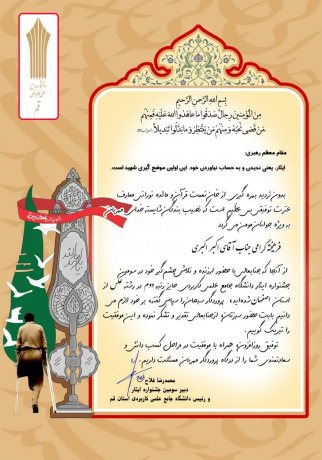 قم
بسم الله الرحمن الرحیم
مِنَ الْمُؤْمِنِينَ رِجَالٌ صَدَقُوا مَا عَاهَدُوا اللَّهَ عَلَيْهِ فَمِنْهُمْ
مَنْ قَضَى نَحْبَهُ وَمِنْهُمْ مَنْ يَنْتَظِرُ وَمَا بَدَّلُوا تَبْدِيلًا
مقام معظم رهبری:
ایثار، یعنی ندیدی و به حساب نیاوردی خود. این اولین موضع گیری شهید است.
بدون تردید بهره گیری از خوان نعمت قرآن و مائده نورانی معارف
عترت توفیقی بس عظیم است که نصیب بندگان شایسته خدای مهربان
به ویژه جوانان مومن می گردد
فرهیخته گرامی جناب آقای اکبر اکبری
از آنجا که جنابعالی با حضور ارزنده و تلاش چشم گیر خود در سومین
جشنواره ایثار دانشگاه جامع علمی کاربردی حایز رتبه دوم در رشته عکس از
استان اصفهان شده اید، پروردگار سبحان را سپاس گفته، بر خود لازم می
دانیم بابت حضور سبزتان از جنابعالی تقدیر و تشکر نموده و این موفقیت
را تبریک گوییم.
توفیق روزافزون همراه با موفقیت در مراحل کسب دانش و
سعادتمندی شما را از درگاه پروردگار مهربان مسئلت داریم.
محمدرضا فلاح
دبیر سومین جشنواره ایثار
و رئیس دانشگاه جامع علمی کاربردی استان قم